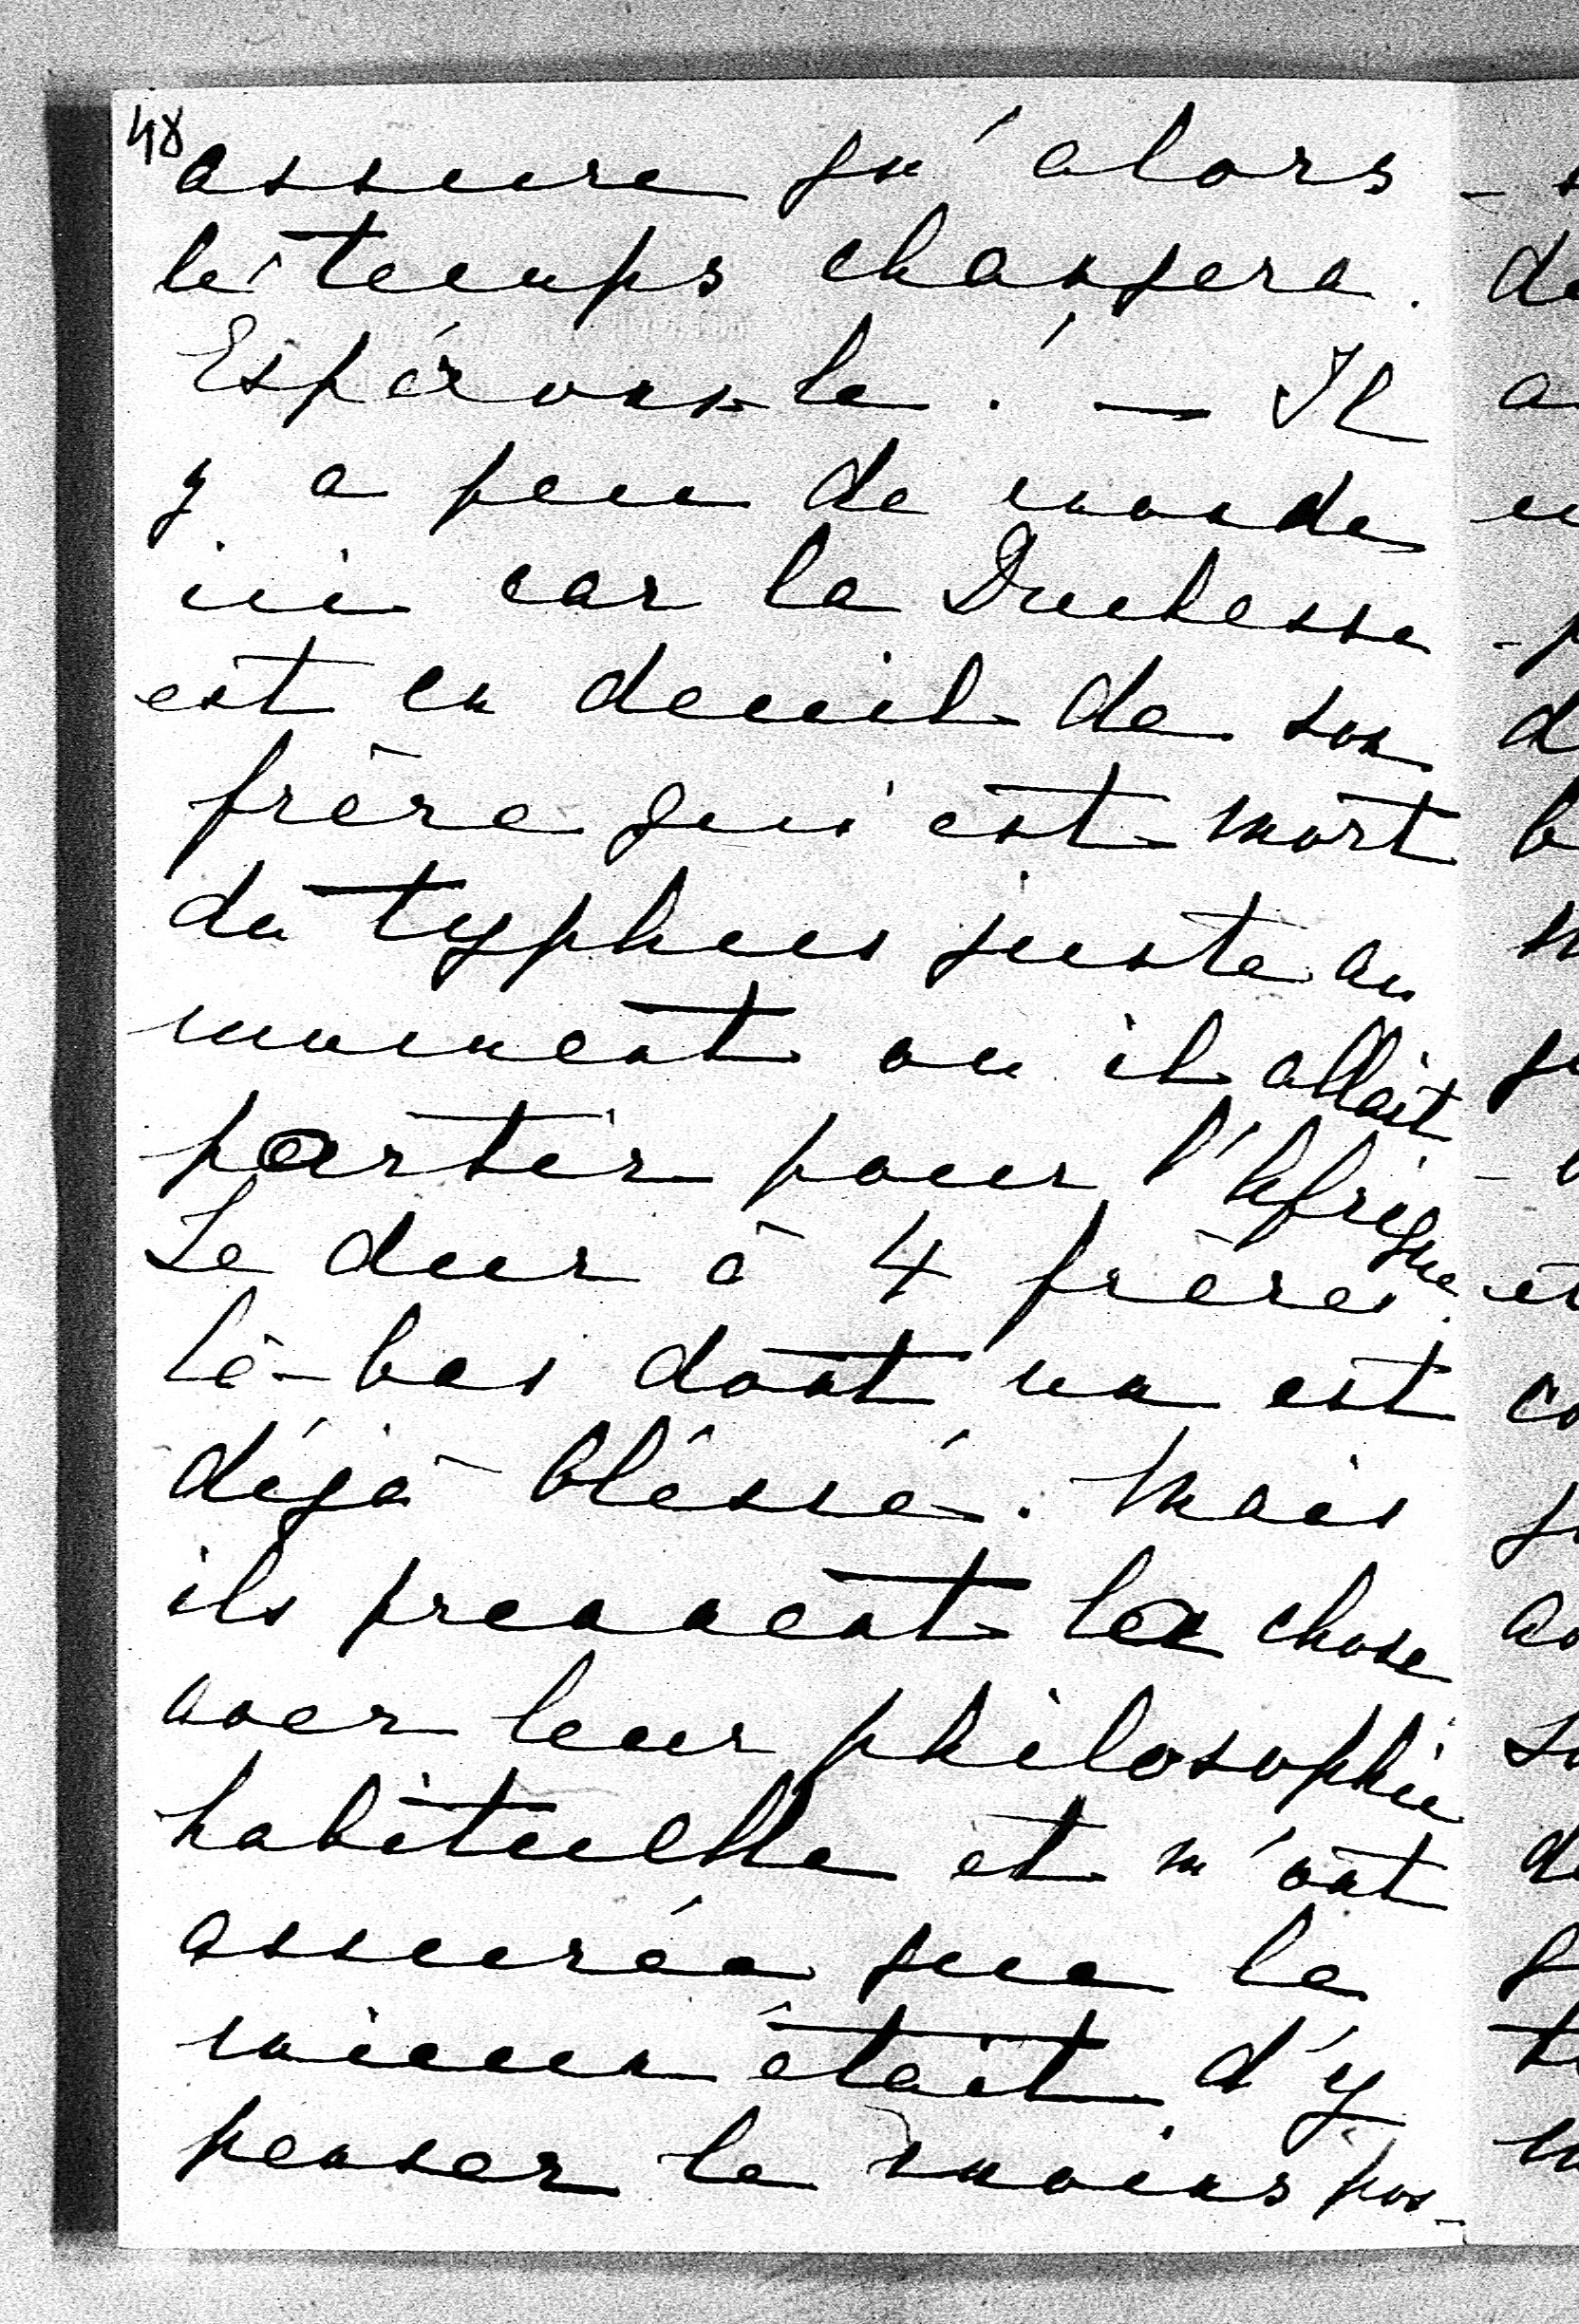 48
assure qu'alors
le temps changera.
Espérons-le! — Il
y a peu de monde
ici car la Duchesse
est en deuil de son
frère qui est mort
du typhus juste au
moment ou il allait
partir pour l'Afrique.
Le duc à 4 frères
là-bas dont un est
déjà bléssé. Mais
ils prennent la chose
avec leur philosophie
habituelle et m'ont
assurée que le
mieux était d'y
penser le moins pos-